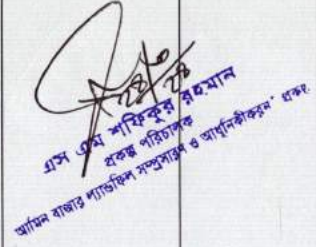 ২৪/১০
২৪
এস এম শফিকুর রহমান
প্রকল্প পরিচালক
আমিন বাজার ল্যান্ডফিল সম্প্রসারণ ও আধুনিকীকরন" প্রকল্প